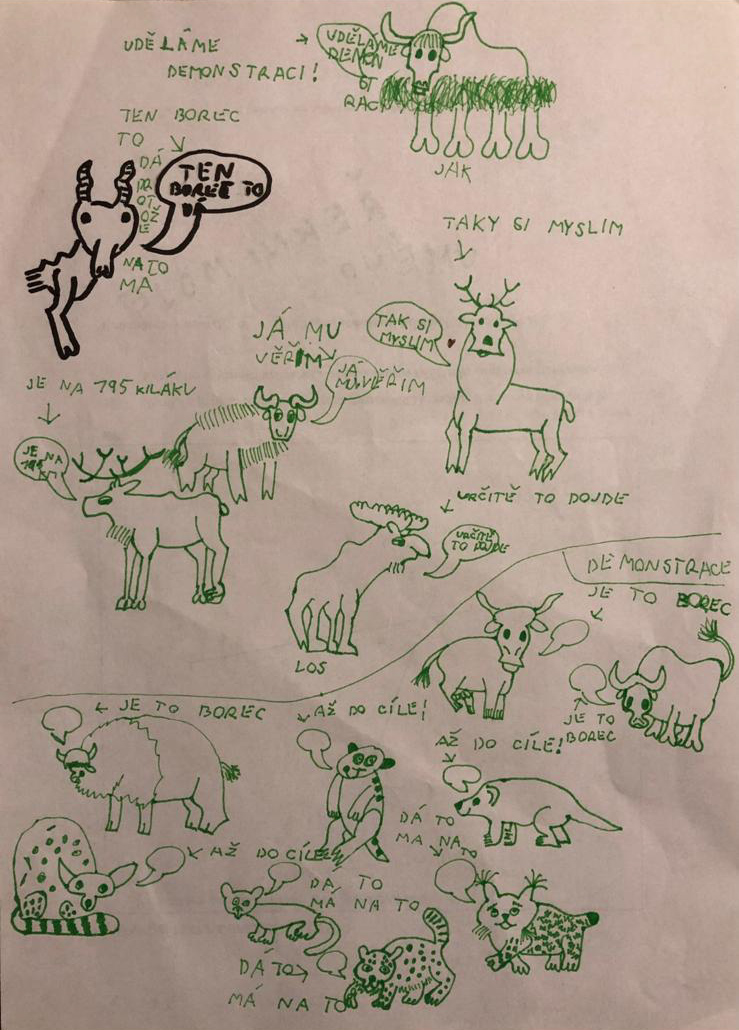 UDĚLÁME
DEMONSTRACI!
UDĚLÁME
DEMON
ST
RACI
JAK
TEN BOREC
TO
DÁ
PR
OT
OŽ
E
NA TO
MÁ
TEN
BOREC TO
DÁ
TAKY SI MYSLÍM
TAK SI
MYSLIM
JÁ MU
VĚŘÍM
JÁ
MU VĚŘIM
JE NA 195 KILÁKU
JE NA
195
URČITĚ TO DOJDE
URČITĚ
TO DOJDE
LOS
DEMONSTRACE
JE TO BOREC
JE TO
BOREC
JE TO BOREC
AŽ DO CÍLE!
AŽ DO CÍLE!
AŽ DO CÍLE
DÁ TO
MA NA
TO
DÁ TO
MÁ NA TO
DÁ TO
MÁ NA TO